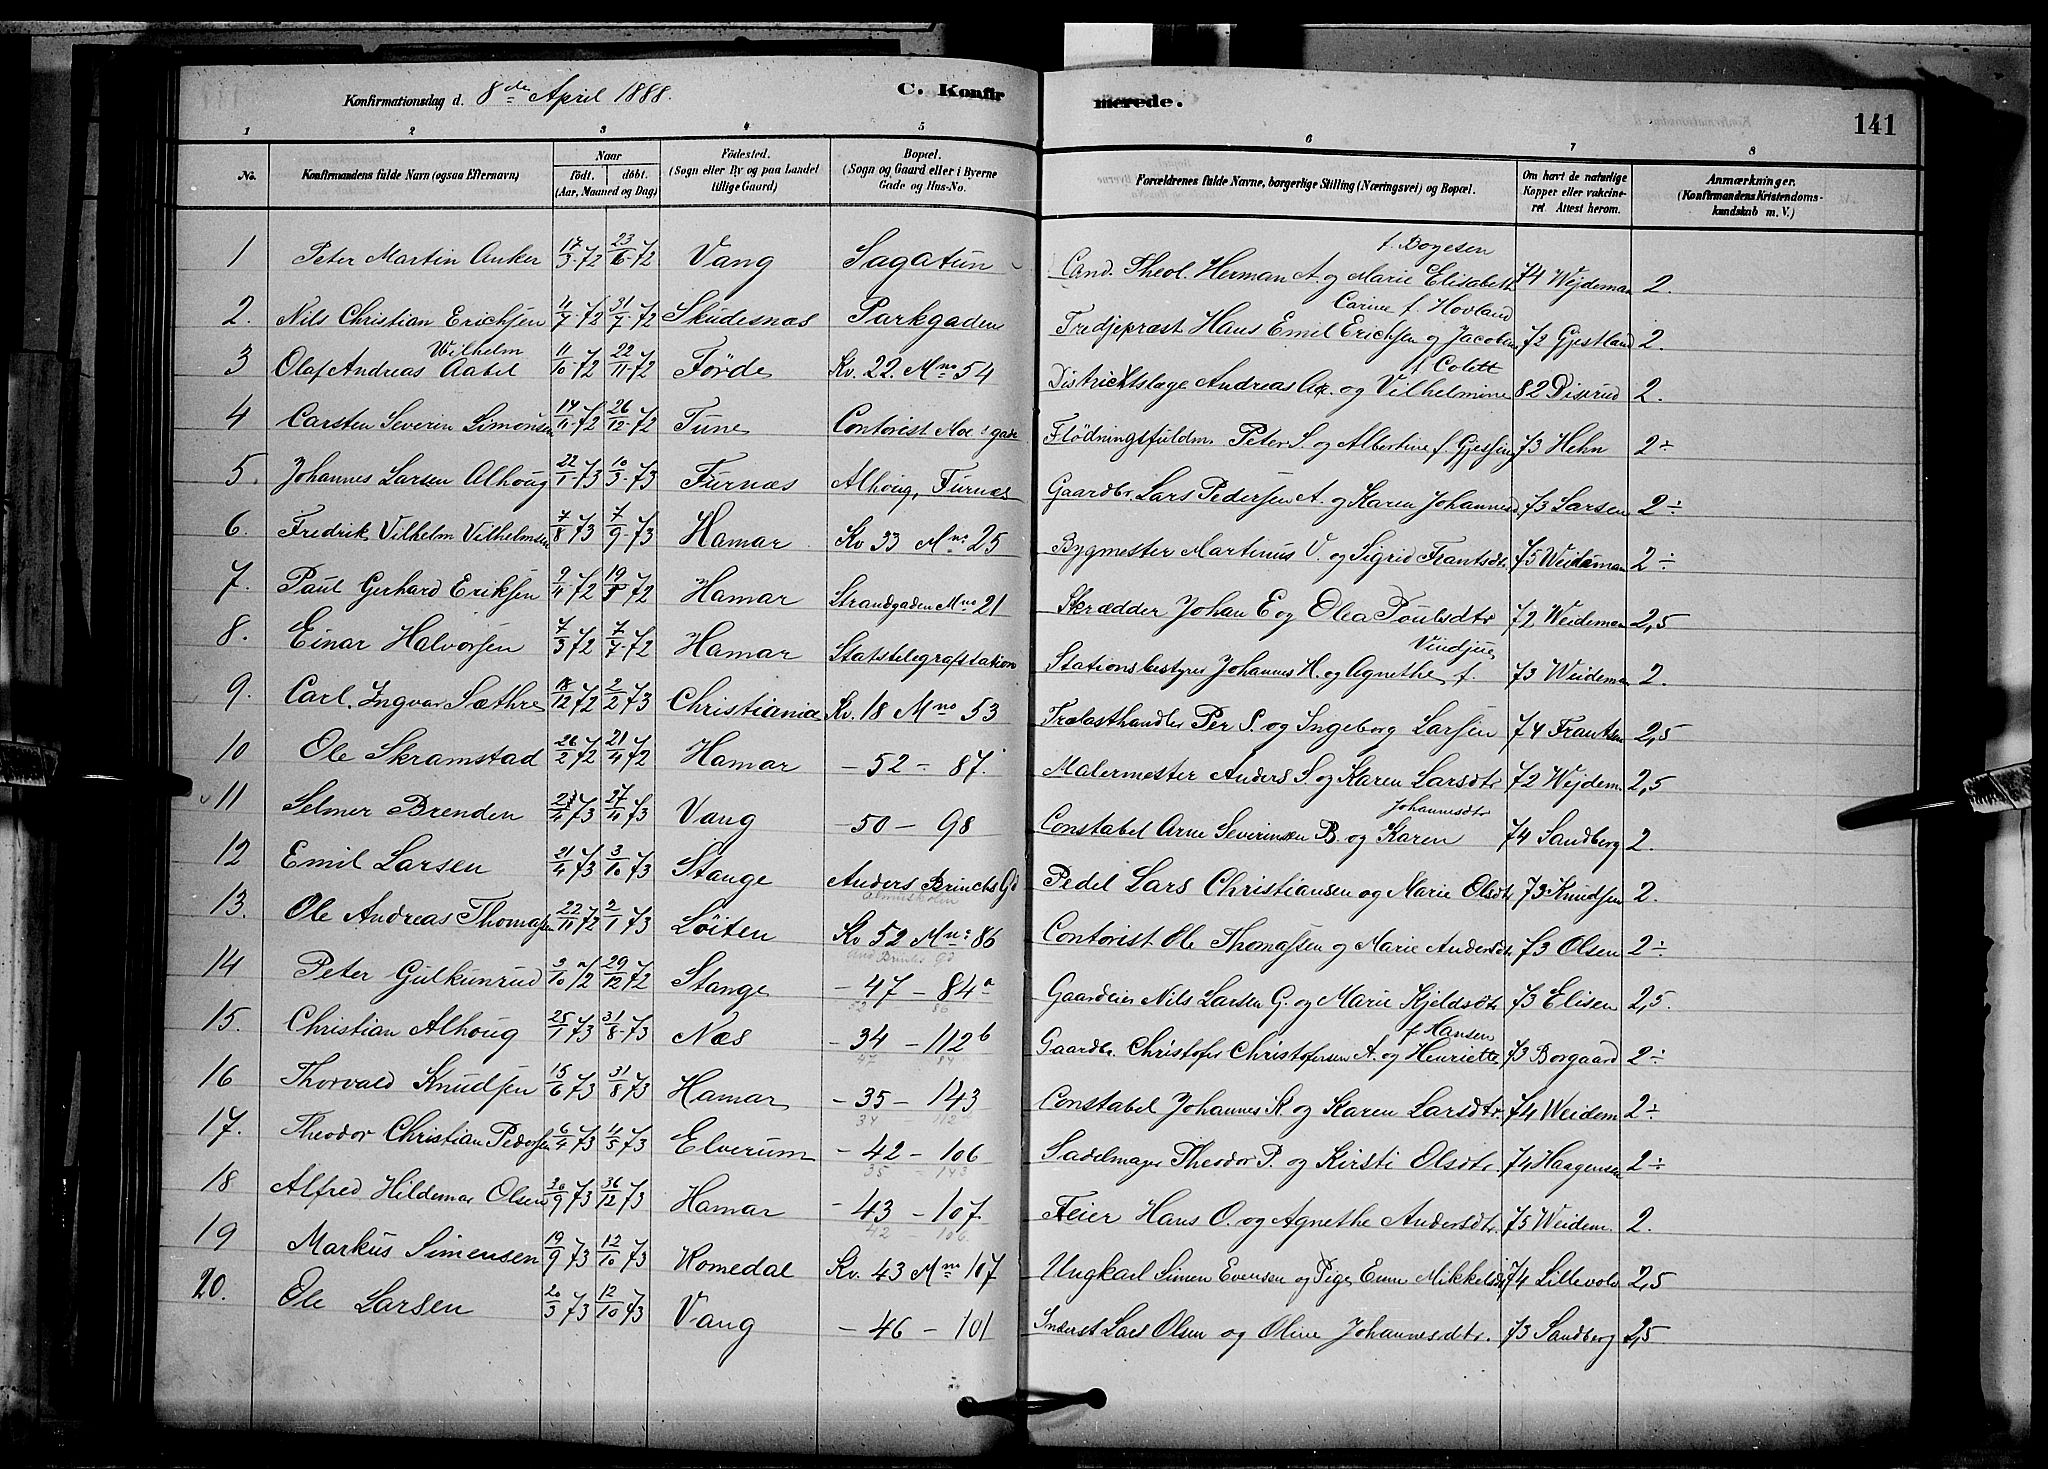 Konfirmationsdag d. 8de April 1888. C. Konfirmerede. 141
1 2 3 4 5 6 7 8
No. Konfirmandens fulde Navn (ogsaa Efternavn) Naar födt. döbt. (Aar, Maaned og Dag) Födested. (Sogn eller By og paa Landet tillige Gaard) Bopæl. (Sogn og Gaard eller i Byerne Gade og Hus-No. Forældrenes fulde Navne, borgerlige Stilling (Næringsvei) og Bopæl. Om havt de naturlige Kopper eller vakcineret. Attest herom. Anmærkninger. (Konfirmandens Kristendomskundskab m. V.)
f. Boyesen
1 Peter Martin Anker 17/3 72 23/6 72 Vang Sagatun Cand. Theol. Herman A. og Marie Elisabeth 74 Wejdeman 2.
Carine f. Hovland
2. Nils Christian Erichsen 11/7 72 31/7 72 Skudesnæs Parkgaden Tredjepræst Hans Emil Erichsen og Jacobine 72 Gjestland 2.
Wilhelm f. Colett
3 Olaf Andreas Aabel 11/10 72 22/11 72 Förde Kv. 22. Mno 54 Districtslæge Andreas Aa. og Vilhelmine 82 Disrud 2.
4 Carsten Severin Simonsen 14/11 72 26/12 72 Tune Contorist Moe's gade Flödningsfuldm. Peter S. og Albertine f. Gjessing 73 Hehn 2÷
5. Johannes Larsen Alhoug 22/1 73 10/3 73 Furnæs Alhoug, Furnæs Gaardbr. Lars Pedersen A. og Karen Johannesd. 73 Larsen 2÷
6. Fredrik Vilhelm Vilhelmsen 7/8 73 7/9 73 Hamar Kv 33 Mno 25 Bygmester Martinus V. og Sigrid Frantsdtr. 75 Weideman 2÷
7. Paul Gerhard Eriksen 9/4 72 19/5 72 Hamar Strandgaden Mno 21 Skrædder Johan E og Olea Poulsdtr 72 Weideman 2,5
Vindju
8. Einar Halvorsen 7/3 72 7/7 72 Hamar Statstelegrafstation Stationsbestyrer Johannes H. og Agnethe f. 73 Weideman 2.
9. Carl Ingvar Sæthre 18/12 72 2/2 73 Christiania Kv. 18 Mno 53 Trælasthandler Per S. og Ingeborg Larsen 74 Frantsen 2,5
10 Ole Skramstad 26/2 72 21/4 72 Hamar - 52 - 87. Malermester Anders S. og Karen Larsdtr 72 Wejdem. 2,5
Johannesdtr
11 Selmer Brenden 73 27/4 73 Vang - 50 - 98 Constabel Arne Severinsen B. og Karen 74 Sandberg 2.
12 Emil Larsen 21/4 73 3/10 73 Stange Anders Brinchs Gd Pedel Lars Christiansen og Marie Olsdtr 73 Knudsen 2.
Almueskolen
13. Ole Andreas Thomassen 22/11 72 2/1 73 Löiten Kv 52 Mno 86 Contorist Ole Thomassen og Marie Andersdtr 73 Olsen 2÷
And Brinchs Gd
14 Peter Gulkunrud 3/10 72 29/12 72 Stange - 47 - 84a Gaardeier Nils Larsen G. og Marie Kjeldsdtr 73 Elisen 2,5.
52 86
f. Hansen
15. Christian Alhoug 25/1 73 31/8 73 Næs - 34 - 112b Gaardbr. Christofer Christofersen A. og Henriette 73 Borgaard 2÷
47 84
16 Thorvald Knudsen 15/6 73 31/8 73 Hamar - 35 - 143 Constabel Johannes K og Karen Larsdtr. 74 Weidem 2÷
34 112
17. Theodor Christian Pedersen 6/4 73 4/5 73 Elverum - 42 - 106 Sadelmager Theodor P. og Kirsti Olsdtr. 74 Haagensen 2÷
35 - 143
18 Alfred Hildemar Olsen 30/9 73 26/12 73 Hamar - 43 - 107. Feier Hans O. og Agnethe Andersdtr. 75 Weidem. 2.
42 - 106.
19 Markus Simensen 19/9 73 12/10 73 Romedal Kv. 43 Mno 107 Ungkarl Simen Evensen og Pige Mikkelsd. 74 Lillevold 2,5
20. Ole Larsen 20/3 73 12/10 73 Vang - 46 - 101 Inderst Lars Olsen og Oline Johannesdtr. 73 Sandberg 2,5